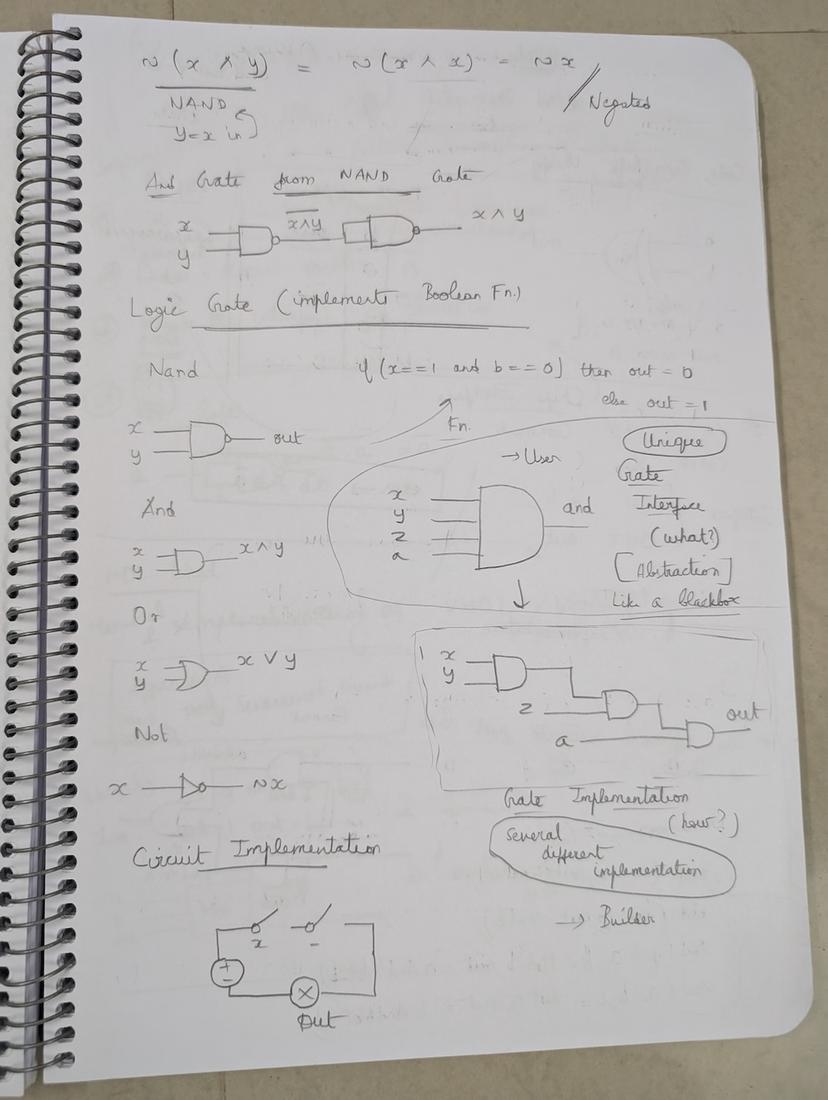 ~ (x ∧ y) = ~ (x ∧ x) = ~x
NAND
y=x in
Negated
And Gate from NAND Gate
x
y
x∧y
x ∧ y
Logic Gate (implements Boolean Fn.)
Nand
if (x==1 and b==0) then out = 0
else out = 1
Fn.
x
y
out
→ User
Unique
Gate
Interface
(what?)
[Abstraction]
Like a blackbox
x
y
z
a
and
And
x
y
x∧y
Or
x
y
x ∨ y
x
y
z
a
out
Not
x
~x
Gate Implementation
(how?)
Several
different
implementation
→ Builder
Circuit Implementation
x
+
-
Out